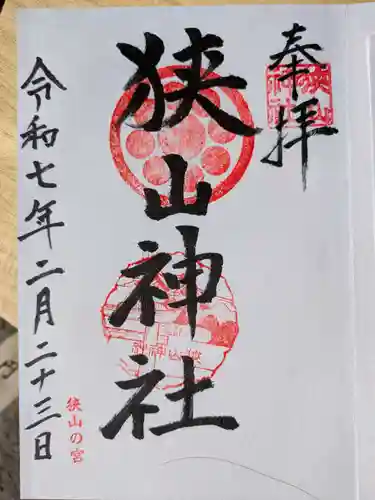 奉拝
狭山神社
令和七年二月二十三日
狭山の宮
狭山神社